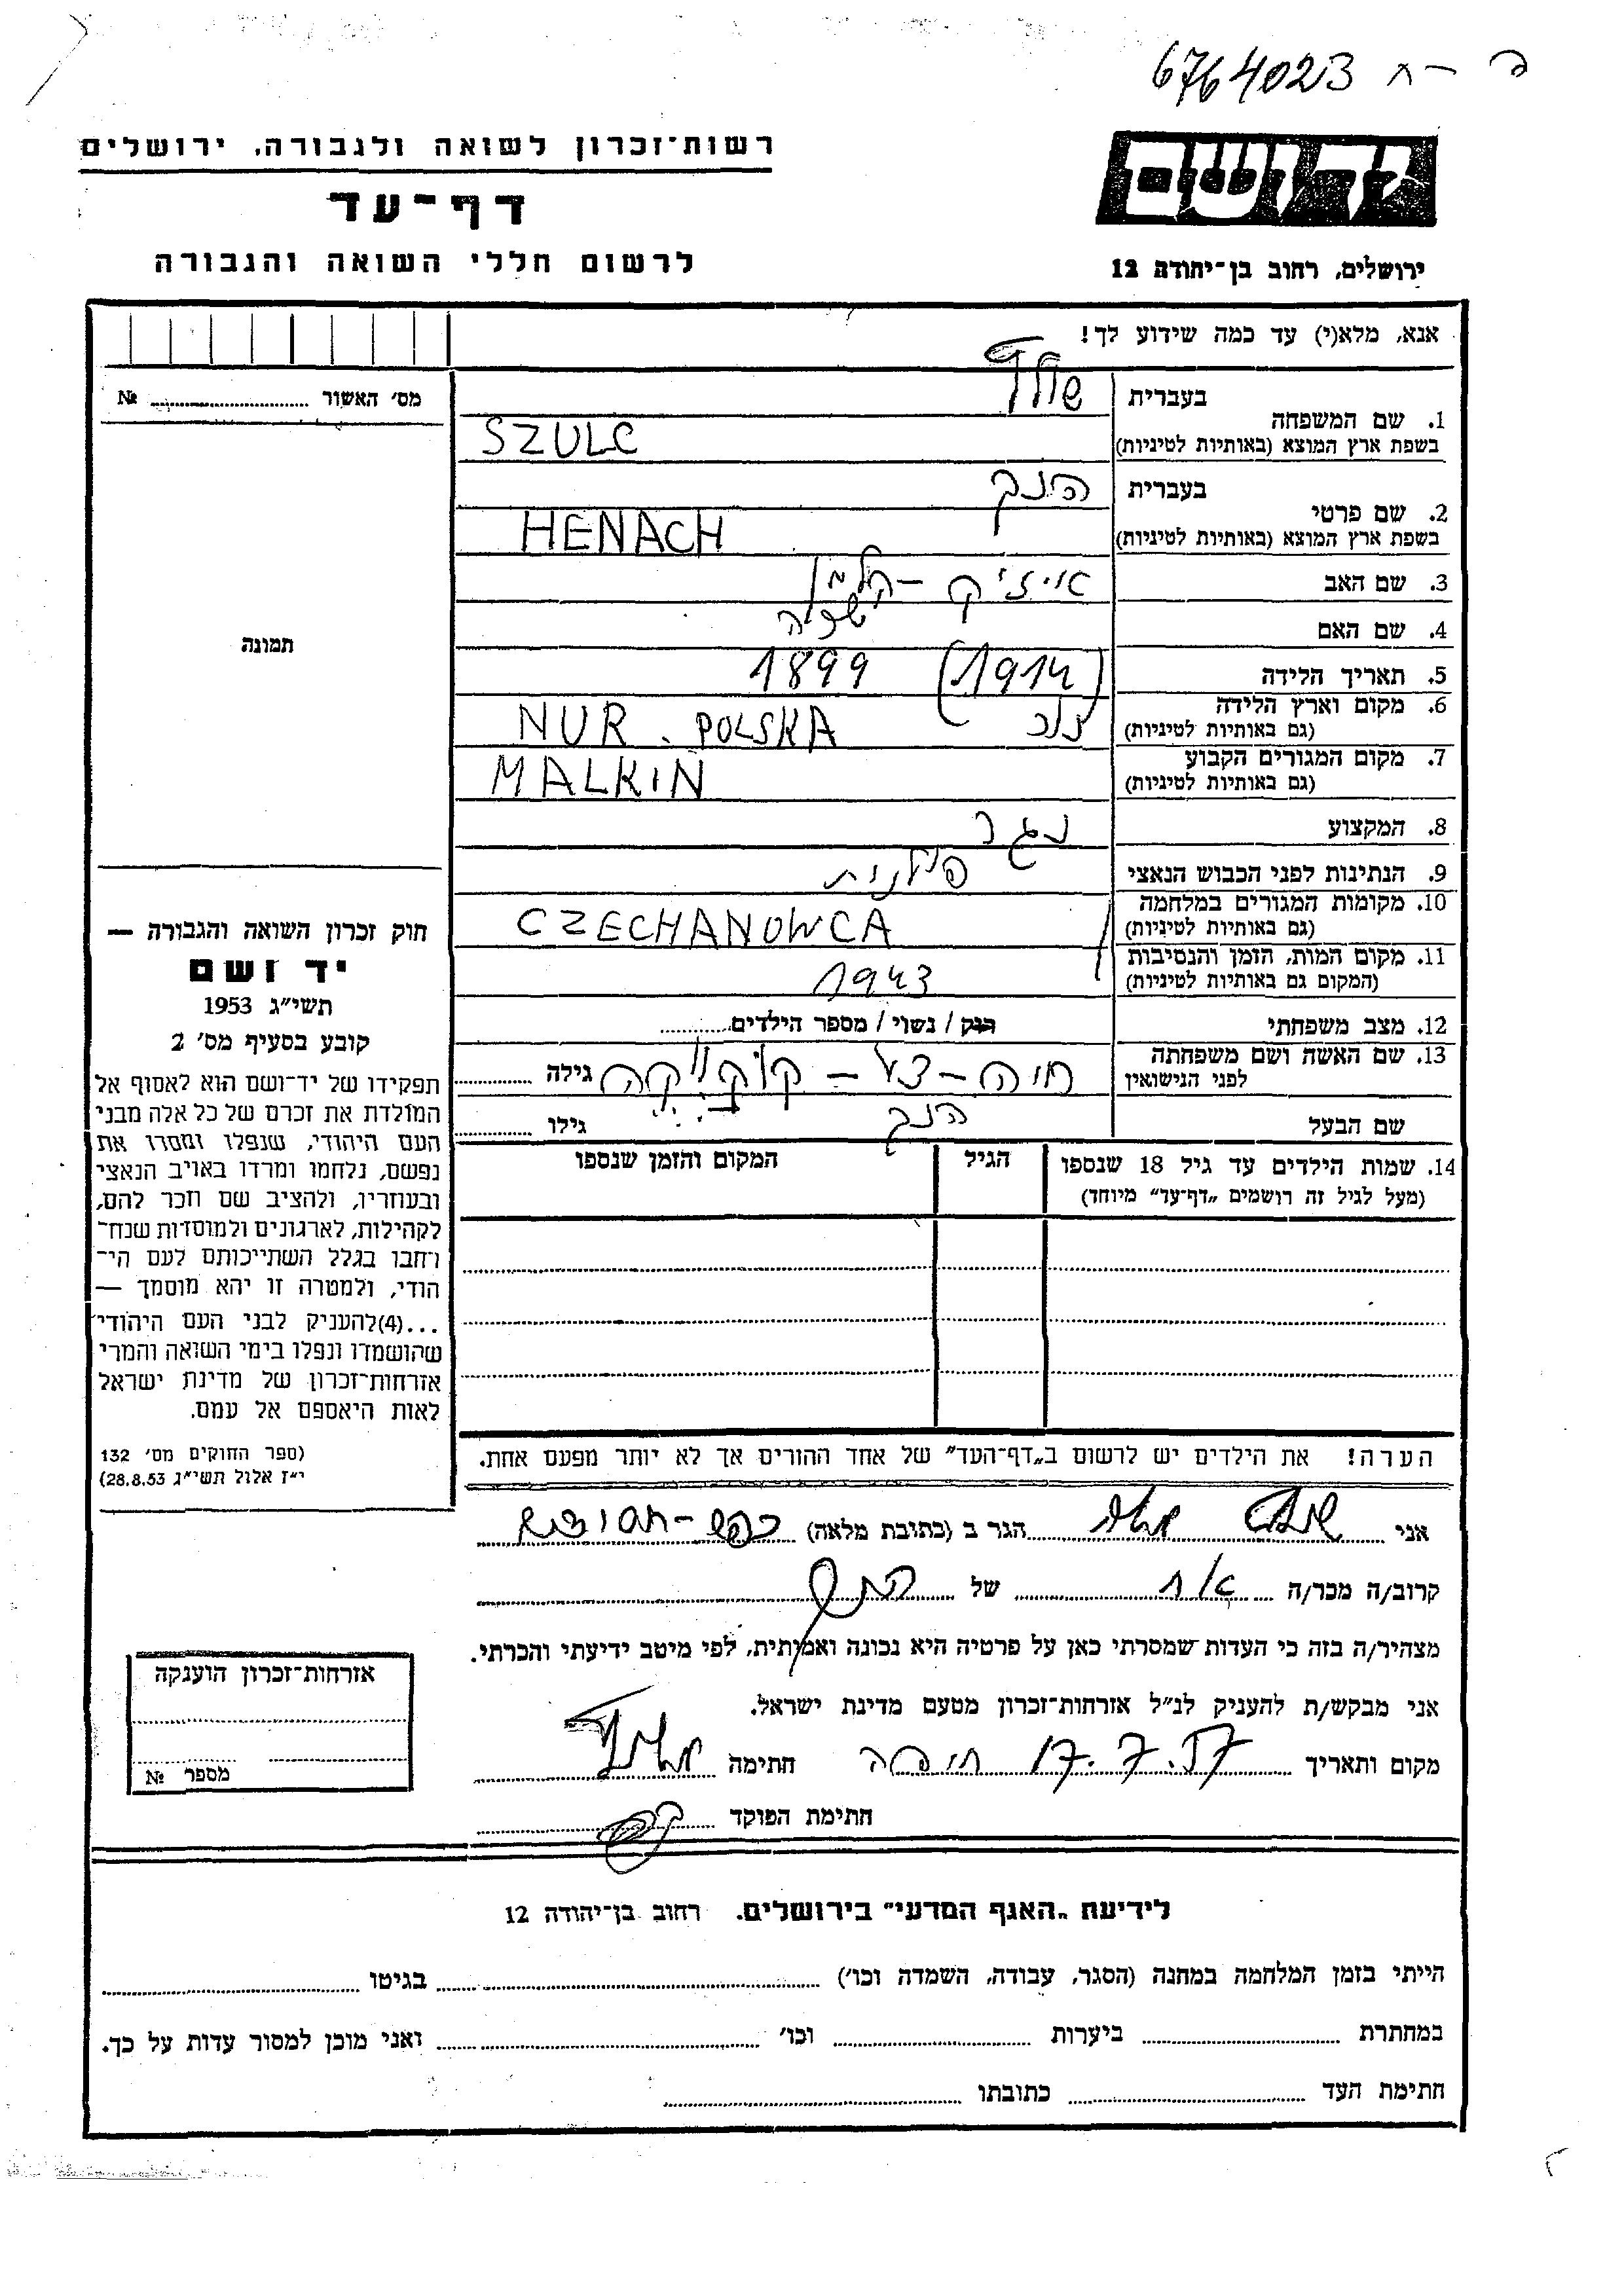 6764023 ח – פ
רשות־זכרון לשואה ולגבורה, ירושלים
דף־עד
לרשום חללי השואה והגבורה
יד ושם
ירושלים, רחוב בן־יהודה 12
אנא, מלא(י) עד כמה שידוע לך!
מס׳ האשור №
1. שם המשפחה
בעברית שולץ
בשפת ארץ המוצא (באותיות לטיניות) SZULC
2. שם פרטי
בעברית הנך
בשפת ארץ המוצא (באותיות לטיניות) HENACH
3. שם האב אייזיק – קלמן
4. שם האם
5. תאריך הלידה (1914) 1899
6. מקום וארץ הלידה
(גם באותיות לטיניות) NUR. POLSKA
7. מקום המגורים הקבוע
(גם באותיות לטיניות) MALKIN
8. המקצוע נגר
9. הנתינות לפני הכבוש הנאצי פולנית
10. מקומות המגורים במלחמה
(גם באותיות לטיניות) CZECHANOWCA
11. מקום המות, הזמן והנסיבות
(המקום גם באותיות לטיניות) 1943
12. מצב משפחתי רווק / נשוי / מספר הילדים
13. שם האשה ושם משפחתה
לפני הנישואין חיה – גילה
שם הבעל הנך גילו
14. שמות הילדים עד גיל 18 שנספו
(מעל לגיל זה רושמים „דף־עד״ מיוחד)
הגיל
המקום והזמן שנספו
תמונה
חוק זכרון השואה והגבורה —
יד ושם
תשי״ג 1953
קובע בסעיף מס׳ 2
תפקידו של יד־ושם הוא לאסוף אל
המולדת את זכרם של כל אלה מבני
העם היהודי, שנפלו ומסרו את
נפשם, נלחמו ומרדו באויב הנאצי
ובעוזריו, ולהציב שם וזכר להם,
לקהילות, לארגונים ולמוסדות שנח־
רחבו בגלל השתייכותם לעם הי־
הודי, ולמטרה זו יהא מוסמך —
...(4)להעניק לבני העם היהודי
שהושמדו ונפלו בימי השואה והמרי
אזרחות־זכרון של מדינת ישראל
לאות היאספם אל עמם.
(ספר החוקים מס׳ 132
י״ז אלול תשי״ג 28.8.53)
הערה! את הילדים יש לרשום ב„דף־העד״ של אחד ההורים אך לא יותר מפעם אחת.
אני הגר ב (כתובת מלאה)
קרוב/ה מכר/ה אח של
מצהיר/ה בזה כי העדות שמסרתי כאן על פרטיה היא נכונה ואמתית, לפי מיטב ידיעתי והכרתי.
אני מבקש/ת להעניק לנ״ל אזרחות־זכרון מטעם מדינת ישראל.
מקום ותאריך 17.7.57 חיפה חתימה
חתימת הפוקד
אזרחות־זכרון הוענקה
מספר №
לידיעת „האגף המדעי״ בירושלים. רחוב בן־יהודה 12
הייתי בזמן המלחמה במחנה (הסגר, עבודה, השמדה וכו׳) בגיטו
במחתרת ביערות וכו׳ ואני מוכן למסור עדות על כך.
חתימת העד כתובתו